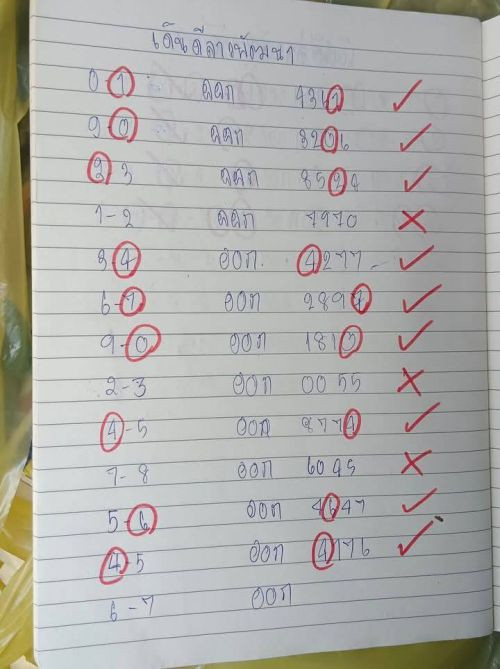 เด่นดีลาวพัฒนา
0 1 ออก 4341 ✓
9-0 ออก 3206 ✓
2 3 ออก 8524 ✓
1-2 ออก 7970 ✗
3 4 ออก 4277 ✓
6-7 ออก 2897 ✓
9-0 ออก 1810 ✓
2-3 ออก 0055 ✗
4-5 ออก 8774 ✓
7-8 ออก 6045 ✗
5-6 ออก 4647 ✓
4-5 ออก 4176 ✓
6-7 ออก